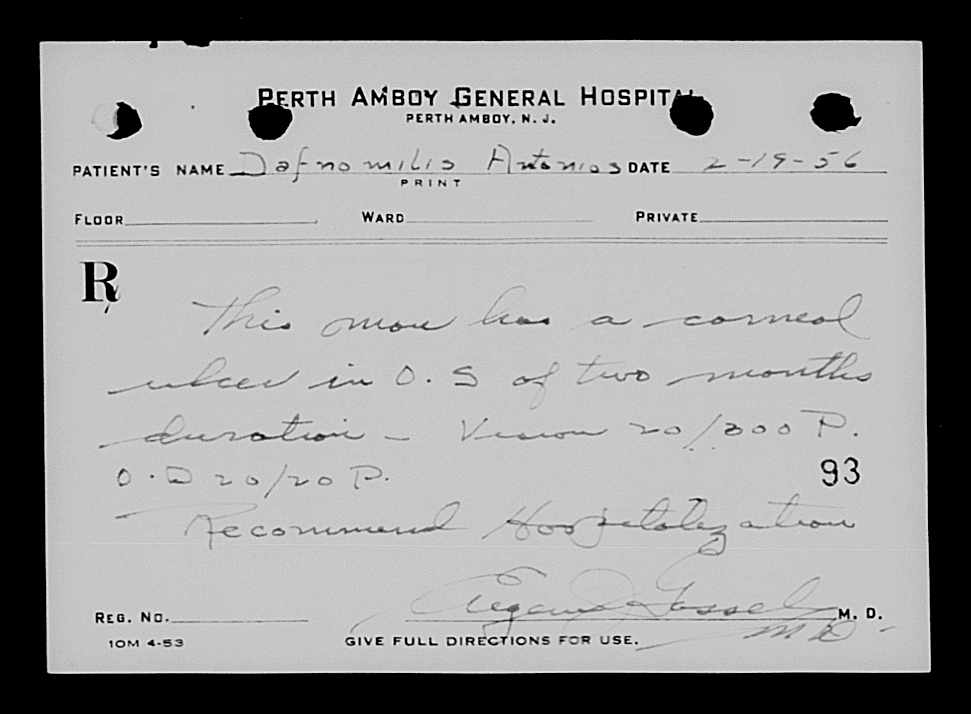 PERTH AMBOY GENERAL HOSPITAL
PERTH AMBOY, N. J.
PATIENT'S NAME Dafnomilis Antonios DATE 2-19-56
PRINT
FLOOR WARD PRIVATE
Rx
This man has a corneal
ulcer in O.S of two months
duration - Vision 20/200 P.
O.D 20/20 P.
93
Recommend Hospitalization
REG. NO. Eugene M. D.
M D -
10M 4-53 GIVE FULL DIRECTIONS FOR USE.